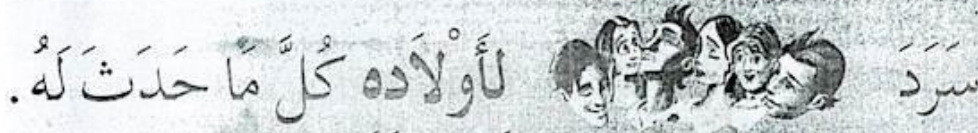 سَرَدَ لأَوْلاَده كُلَّ مَا حَدَثَ لَهُ.